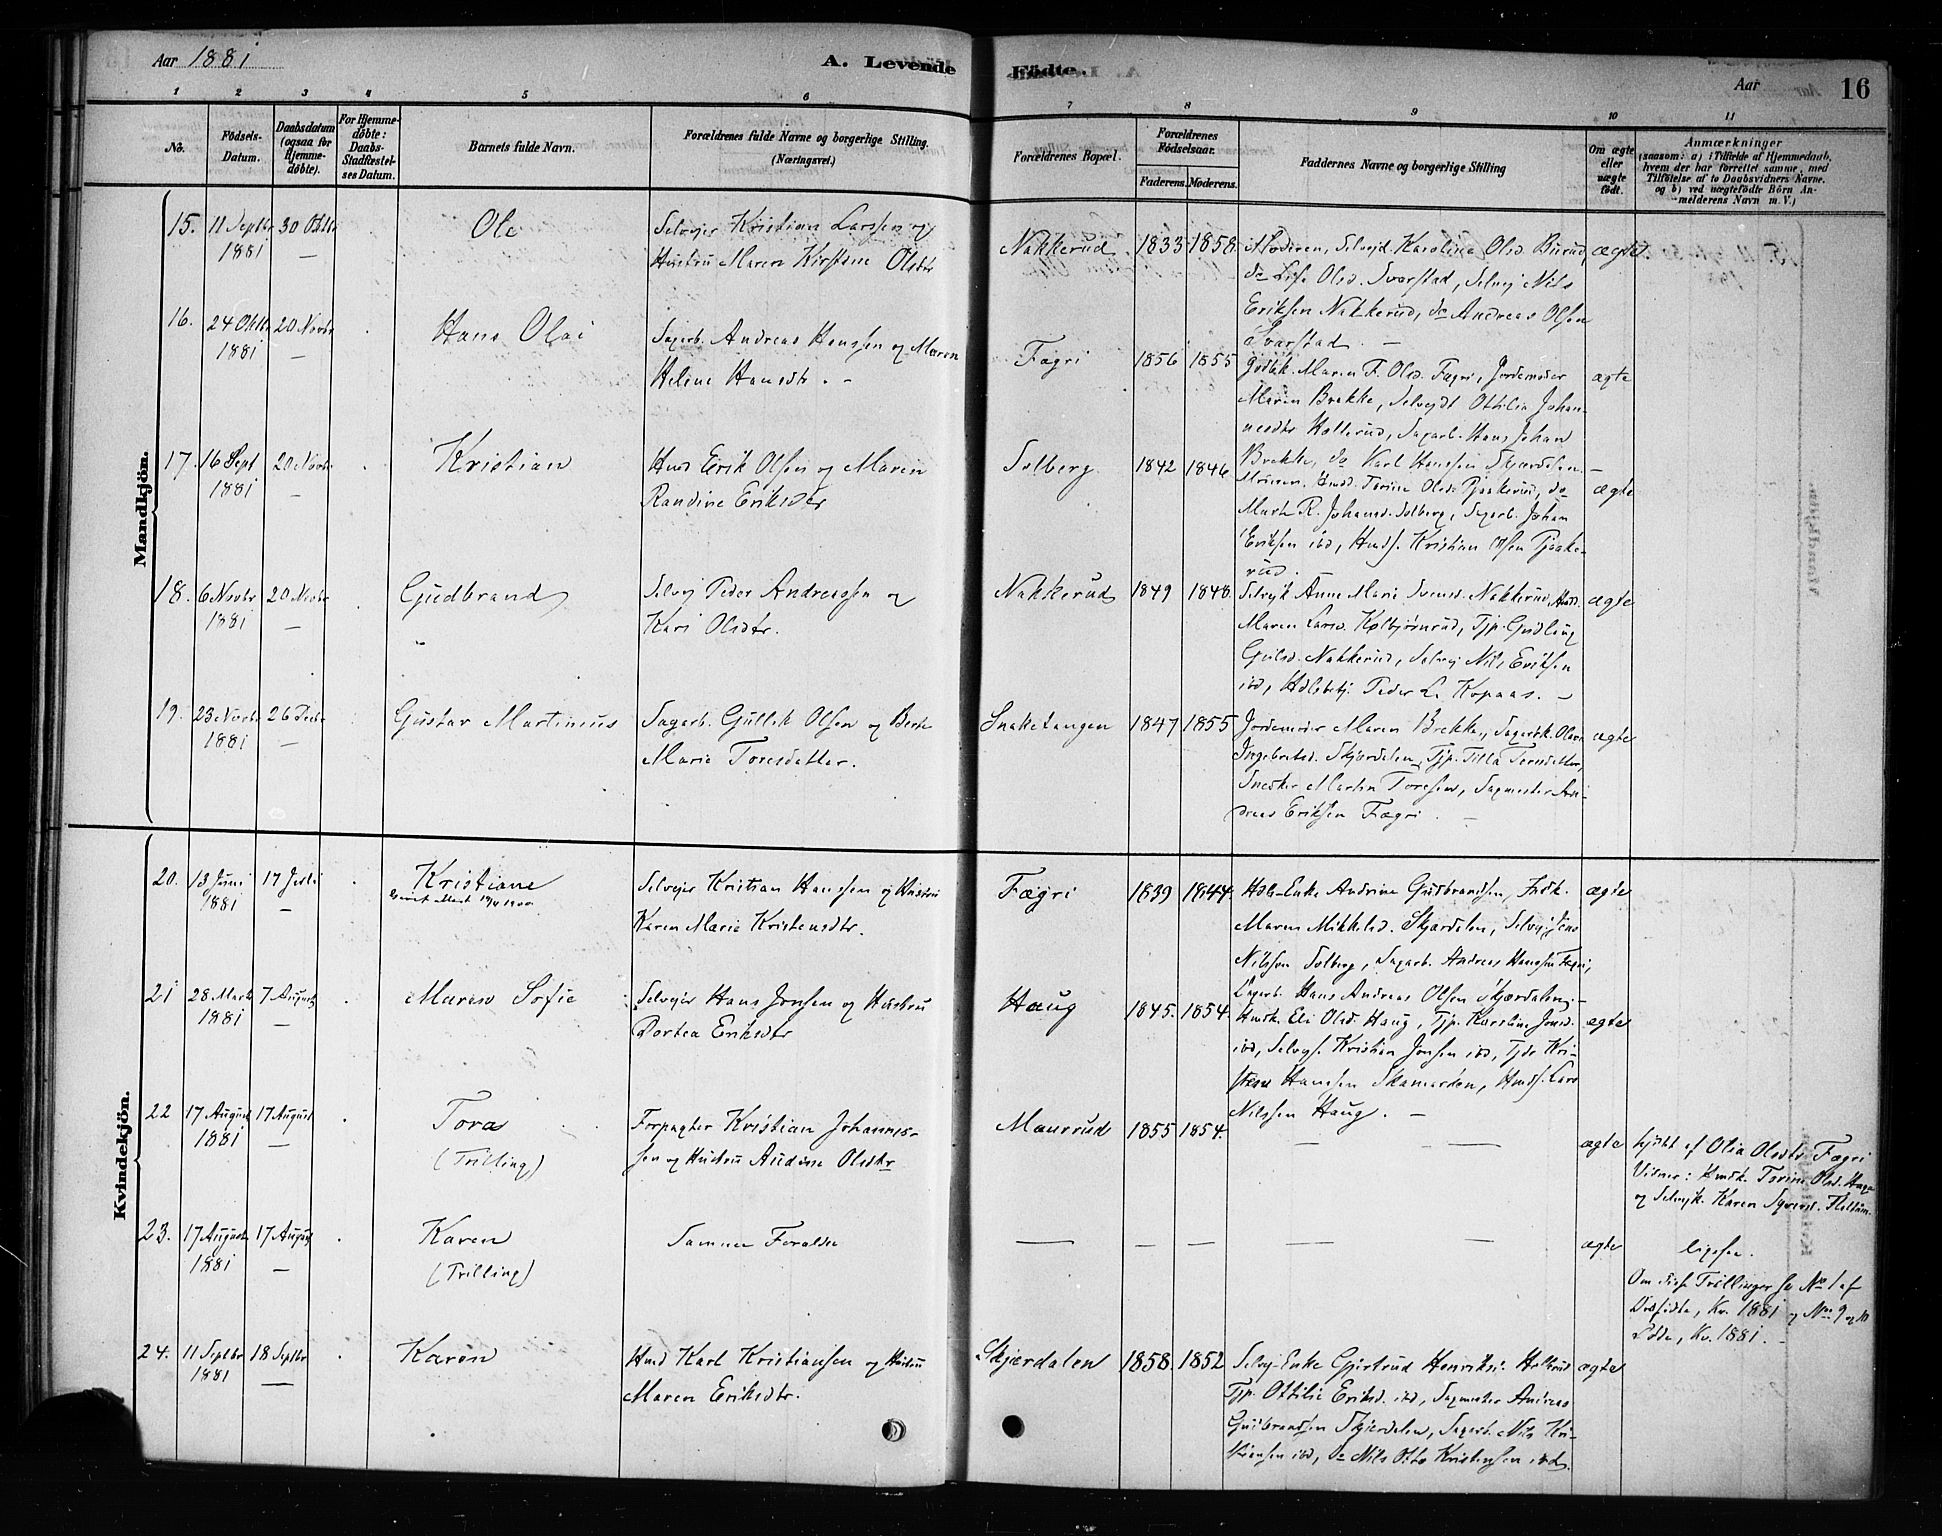 Aar 1881
A. Levende
Födte.
Aar
16
1 2 3 4 5 6 7 8 9 10 11
No.
Födsels-
Datum.
Daabsdatum
(ogsaa for
Hjemme-
döbte).
For Hjemme-
döbte:
Daabs-
Stadfæstel-
ses Datum.
Barnets fulde Navn.
Forældrenes fulde Navne og borgerlige Stilling.
(Næringsvei.)
Forældrenes Bopæl.
Forældrenes
Födselsaar.
Faderens. Moderens.
Faddernes Navne og borgerlige Stilling
Om ægte
eller
uægte
födt.
Anmærkninger
(saasom: a) i Tilfælde af Hjemmedaab,
hvem der har forrettet samme, med
Tilföielse af to Daabsvidners Navne,
og b) ved uægtefödte Börn An-
melderens Navn m. V.)
Mandkjön.
15. 11 Septbr 30 Oktbr
1881 —
Ole
Selvejer Kristian Larssen og
Hustru Maren Kirstine Olsdtr
Nakkerud 1833 1858
Moderen, Selvejd. Karoline Olsd. Burud,
do Lise Olsd. Svarstad, Selvej Nils
Eriksen Nakkerud, do Andreas Olsen
Svarstad. —
ægte
16. 24 Oktbr 20 Novbr
1881 —
Hans Olai
Sagarb. Andreas Hanssen og Maren
Heline Hansdtr. -
Fægri 1856 1855
Maren F. Olsd. Fægri, Jordemoder
Maren Brekke, Selvejdt Othilia Johan-
nesdtr Kollerud, Sagarb. Hans Johan
Brekke, do Karl Hanssen Skjærdalen. —
ægte
17. 16 Sept 20 Novbr
1881 —
Kristian
Hmd Erik Olsen og Maren
Randine Eriksdtr
Solberg 1842 1846
Moderen, Hmd. Torine Olsd. Pjaakerud, do
Marte R. Johansd. Solberg, Sagarb. Johan
Eriksen ibd, Hmds. Kristian Olsen Pjaake-
rud.
ægte
18. 6 Novbr 20 Novbr
1881 —
Gudbrand
Selvej Peder Andreassen og
Kari Olsdtr.
Nakkerud 1849 1848
Selvejk Anne Marie Svensd. Nakkerud, Hmd.
Maren Larsd. Kolbjørnrud, Tjp. Gudling
Gulsd. Nakkerud, Selvej Nils Eriksen
ibd, Peder L. Kopaas. —
ægte
19. 23 Novbr 26 Decbr
1881 —
Gustav Martinius
Sagarb. Gullik Olsen og Berte
Marie Toresdatter.
Snaketangen 1847 1855
Jordemoder Maren Brekke, Sagarbk. Olava
Ingebretsd. Skjærdalen, Tjp. Tilla Toresdatter,
Snedker Martin Toresen, Sagmester An-
dreas Eriksen Fægri. —
ægte
Kvindekjön.
20. 13 Juni 17 Juli
1881 —
Kristiane
Selvejer Kristian Hanssen og Hustru
Karen Marie Kristensdtr.
Fægri 1839 1844
Enke Andrine Gudbrandsen, Indk.
Maren Mikkelsd. Skjærdalen, Selvej Jens
Nilssen Solberg, Sagarb. Andreas Hanssen Fægri,
Sagarb. Hans Andreas Olsen Skjærdalen. —
ægte
21 28 Marts 7 August
1881 —
Maren Sofie
Selvejer Hans Jonsen og Hustru
Dortea Eriksdtr
Haug 1845. 1854.
Hmdk. Eli Olsd. Haug, Tjp. Karoline Jonsd.
ibd, Selvejs. Kristian Jonsen ibd, Tjdr Kri-
stian Hanssen Skamarken, Hmds. Lars
Nilssen Haug. —
ægte
22 17 August 17 August
1881 —
Tora
(Trilling)
Forpagter Kristian Johannes-
sen og Hustru Audine Olsdtr
Maurrud 1855 1854.
— —
ægte
hjdbt af Olia Olsdtr Fægri
Vidner: Hmdk. Torine Olsd. Haga
og Selvejk. Karen Syversd.
23. 17 August 17 August
1881 —
Karen
(Trilling)
Samme Forældre
— — — — —
ægte
ligesaa.
Om disse Trillinger se No 1 af
Dødfødte, Kv. 1881 og No 9 og 10
Døde, Kv. 1881. —
24. 11 Septbr 18 Septbr
1881 —
Karen
Hmd Karl Kristiansen og Hustru
Maren Eriksdtr.
Skjærdalen 1858. 1852
Selvej-Enke Gjertrud Henriksd.
Tjp. Ottilie Eriksd. ibd, Sagmester Andreas
Gudbrandsen Skjærdalen, Sagarb. Nils Kri-
stiansen ibd, do Nils Otto Kristensen ibd.
ægte